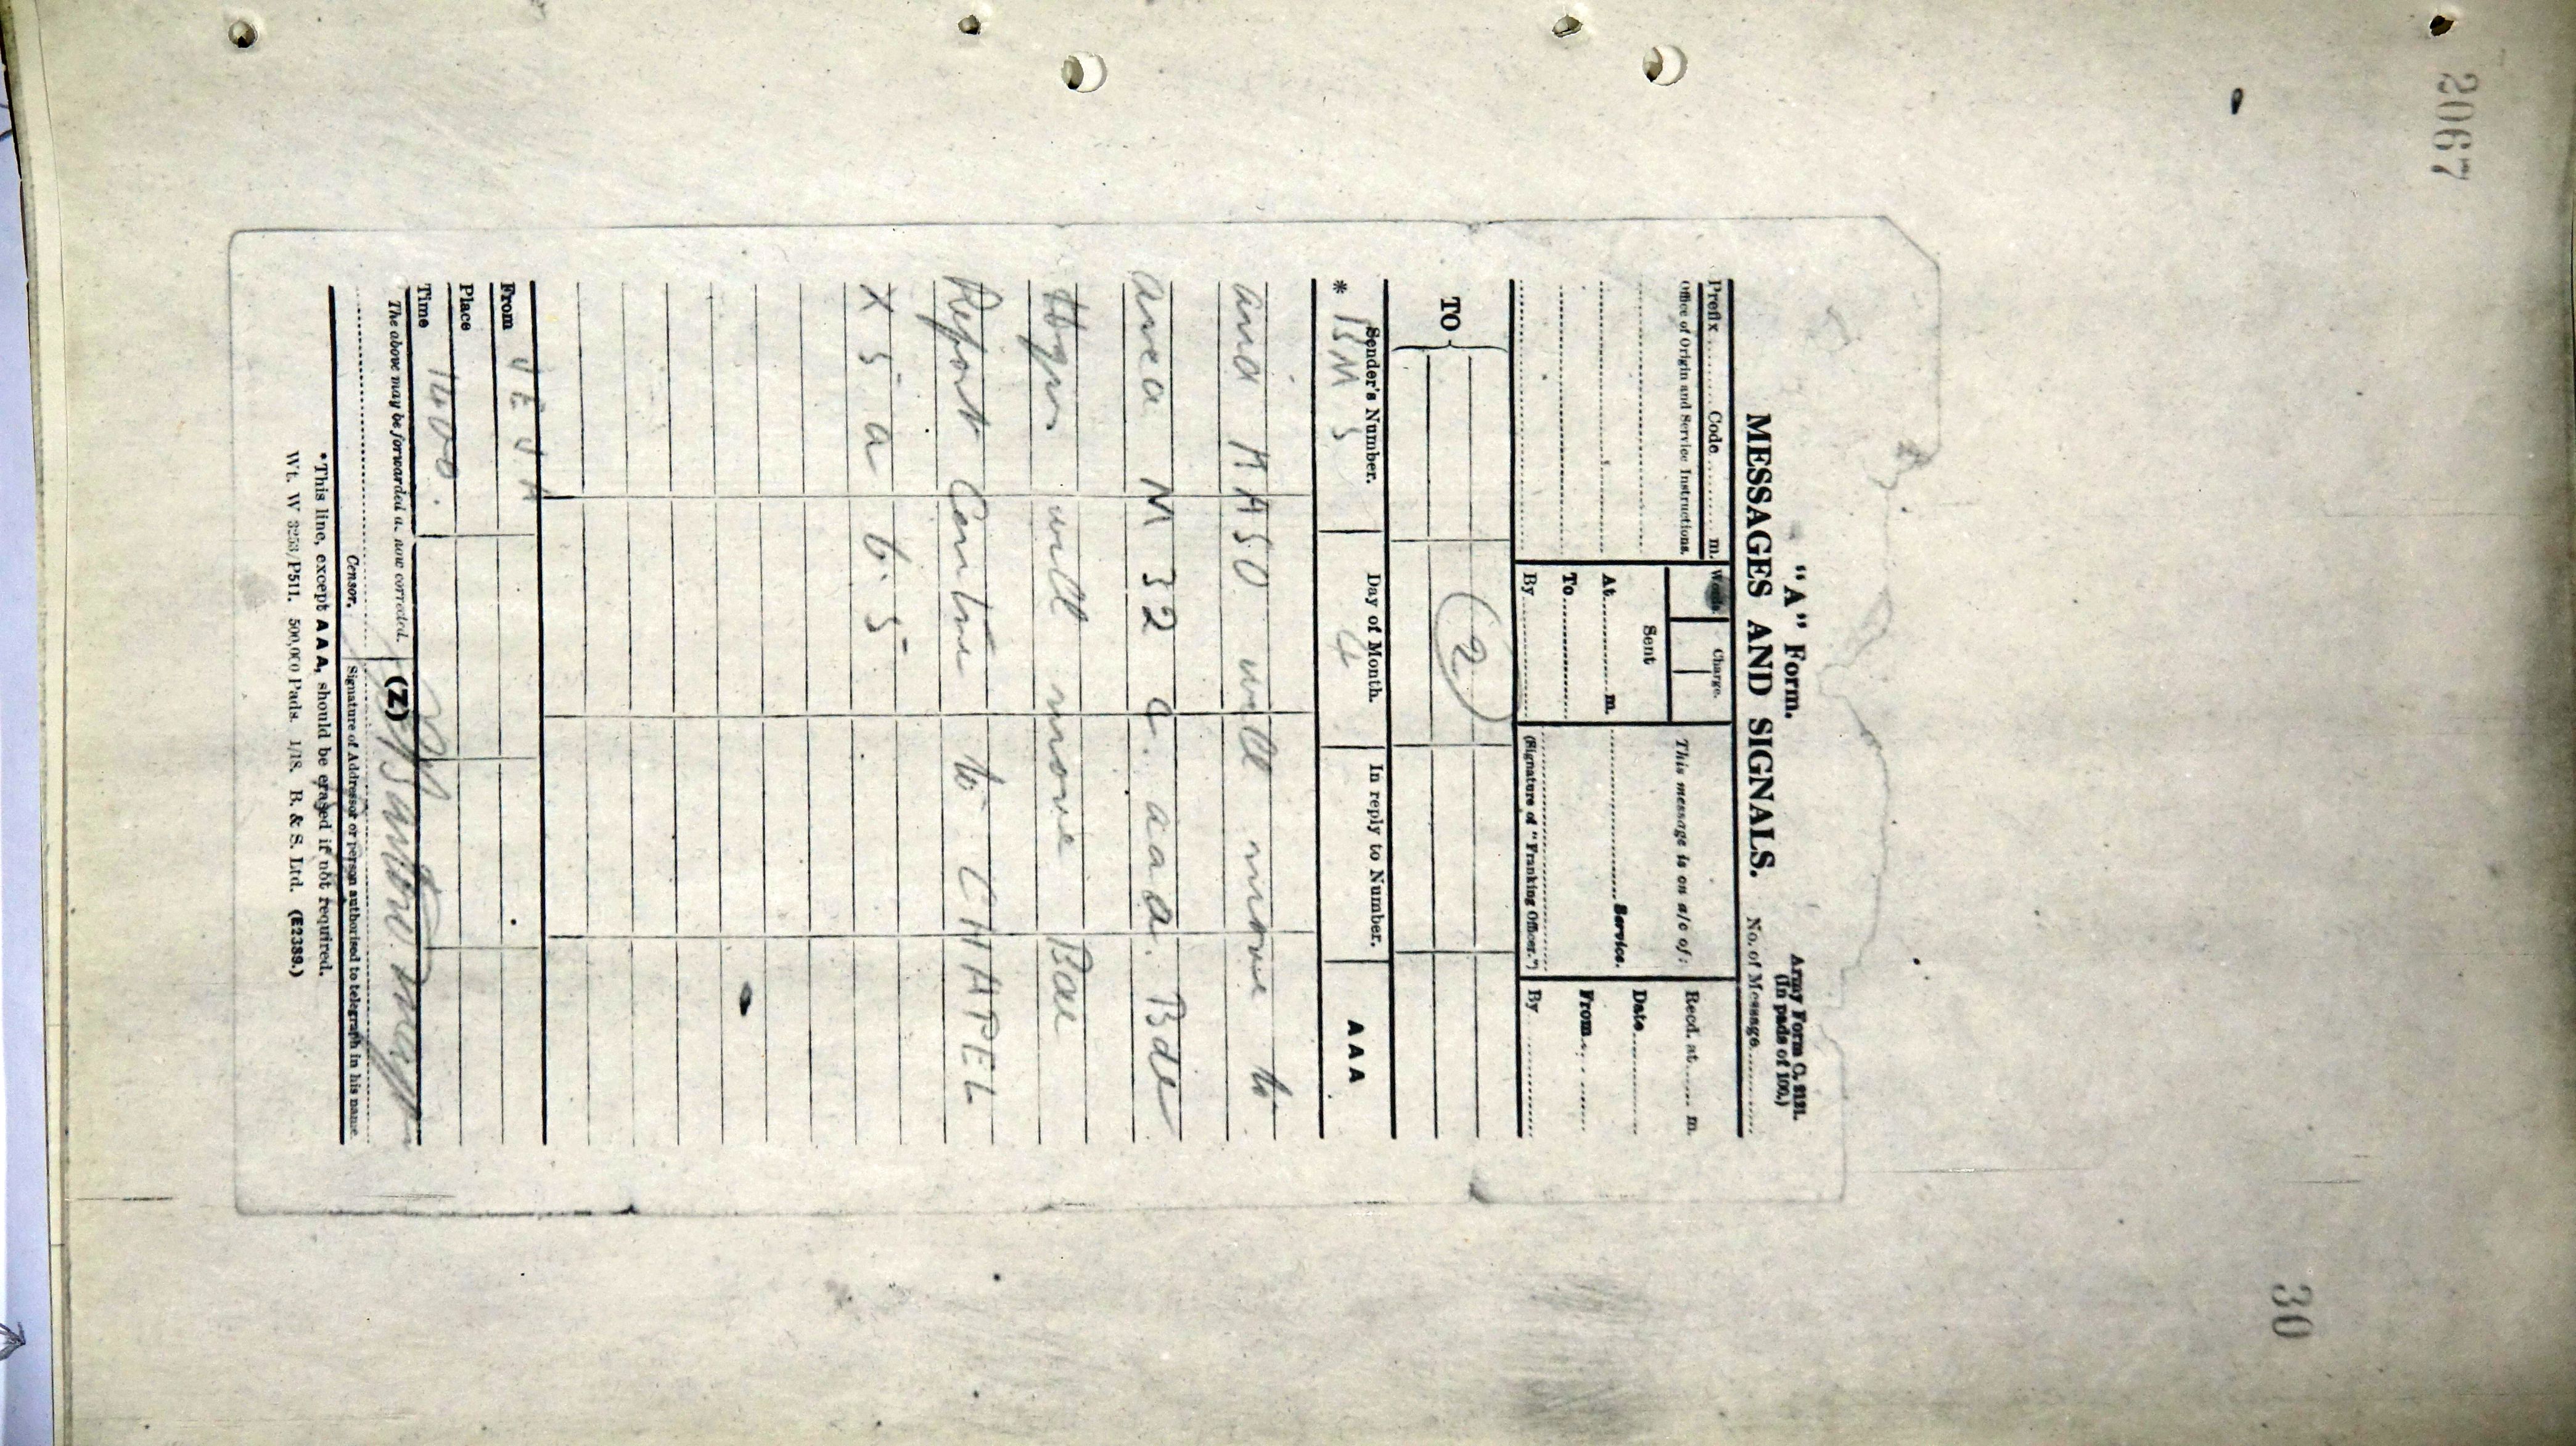 2067
30
"A" Form.
Army Form C. 2121.
(In pads of 100.)
MESSAGES AND SIGNALS.
No. of Message..........
Prefix ........ Code ........ m.
Words.
Charge.
This message is on a/c of:
Recd. at ...... m.
Office of Origin and Service Instructions.
Sent
Date..........
At.......... m.
.......... Service.
From..........
To..........
By..........
(Signature of "Franking Officer.")
By..........
TO
(2)
Sender's Number.
Day of Month.
In reply to Number.
AAA
* BM 5
4
and MASO will move to
area M 32 c. aaa. Bde
Hqrs will move
Report Centre to CHAPEL
X 5 a 6.5
From JEJA
Place
Time 1400.
The above may be forwarded as now corrected.
(Z)
Censor.
Signature of Addressor or person authorised to telegraph in his name
*This line, except AAA, should be erased if not required.
Wt. W 3253/P511. 500,000 Pads. 1/18. B. & S. Ltd. (E2389.)